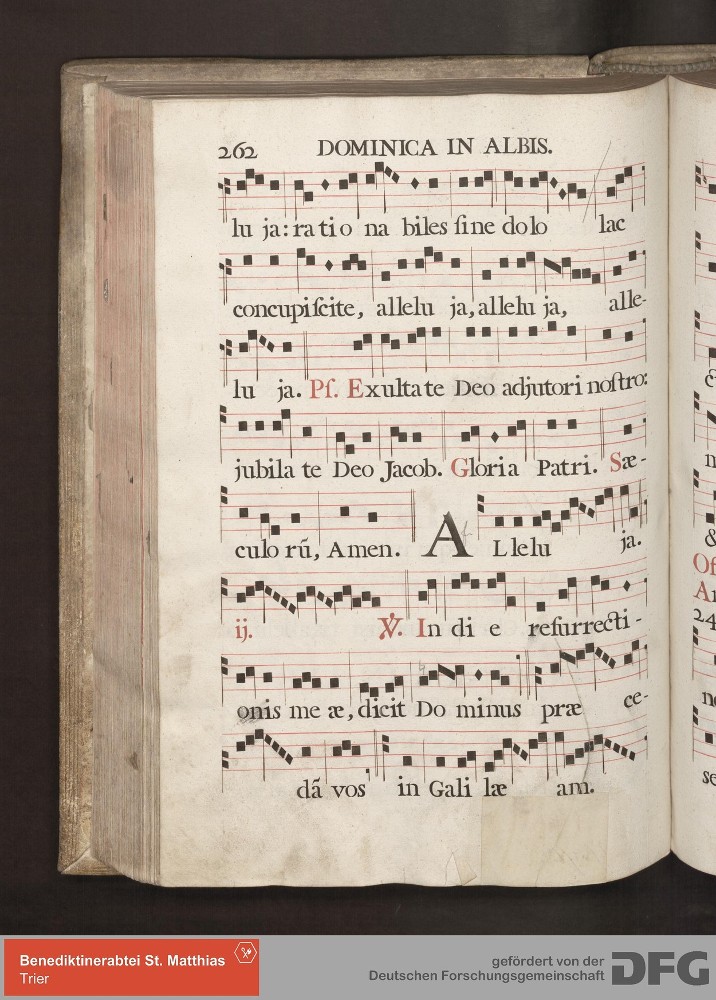 262 DOMINICA IN ALBIS.
lu ja: ra tio na biles ſine dolo lac
concupiſcite, allelu ja, allelu ja, alle-
lu ja. Pſ. Exultate Deo adjutori noſtro:
jubila te Deo Jacob. Gloria Patri. Sæ-
culo rū, Amen. ALlelu ja.
ij. ℣. In di e reſurrecti-
onis me æ, dicit Do minus præ ce-
dā vos in Gali læ am.
Benediktinerabtei St. Matthias
Trier
gefördert von der
Deutschen Forschungsgemeinschaft DFG